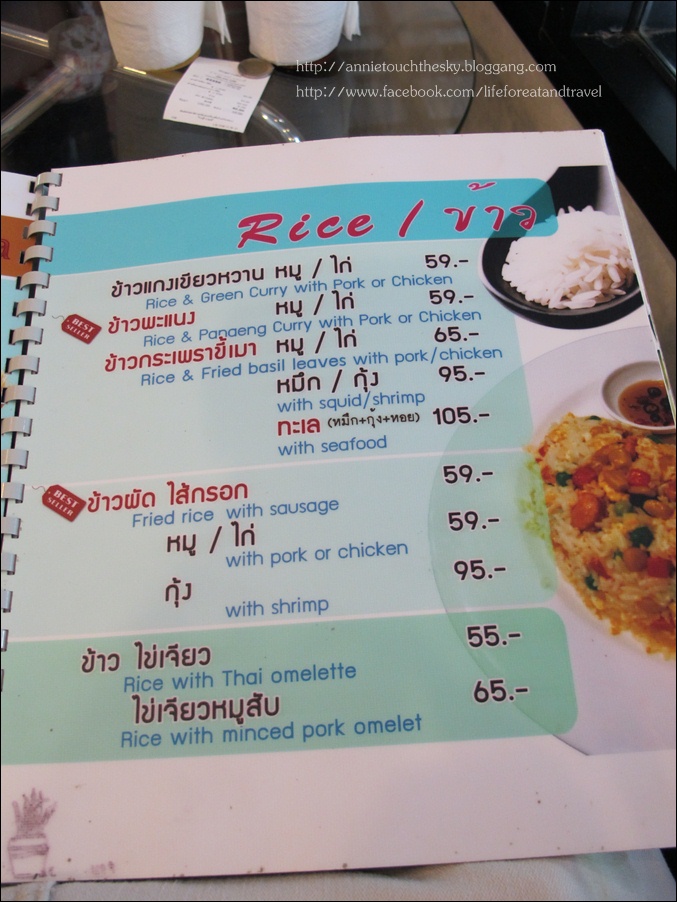 http://annietouchthesky.bloggang.com
http://www.facebook.com/lifeforeatandtravel
Rice / ข้าว
ข้าวแกงเขียวหวาน หมู / ไก่ 59.-
Rice & Green Curry with Pork or Chicken
BEST SELLER
ข้าวพะแนง หมู / ไก่ 59.-
Rice & Panaeng Curry with Pork or Chicken
ข้าวกระเพราขี้เมา หมู / ไก่ 65.-
Rice & Fried basil leaves with pork/chicken
หมึก / กุ้ง 95.-
with squid/shrimp
ทะเล (หมึก+กุ้ง+หอย) 105.-
with seafood
BEST SELLER
ข้าวผัด ไส้กรอก 59.-
Fried rice with sausage
หมู / ไก่ 59.-
with pork or chicken
กุ้ง 95.-
with shrimp
ข้าว ไข่เจียว 55.-
Rice with Thai omelette
ไข่เจียวหมูสับ 65.-
Rice with minced pork omelet